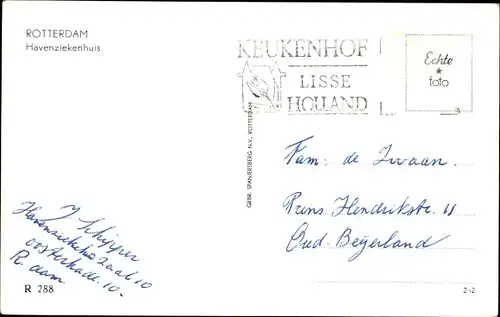 ROTTERDAM
Havenziekenhuis
KEUKENHOF
LISSE
HOLLAND
Echte
foto
GEBR. SPANJERSBERG N.V., ROTTERDAM
Fam: de Zwaan.
Prins Hendrikstr. 11
Oud-Beijerland
J Schipper
Havenziekenhuis zaal 10
oosterkade. 10.
R. dam
R 288
2-2